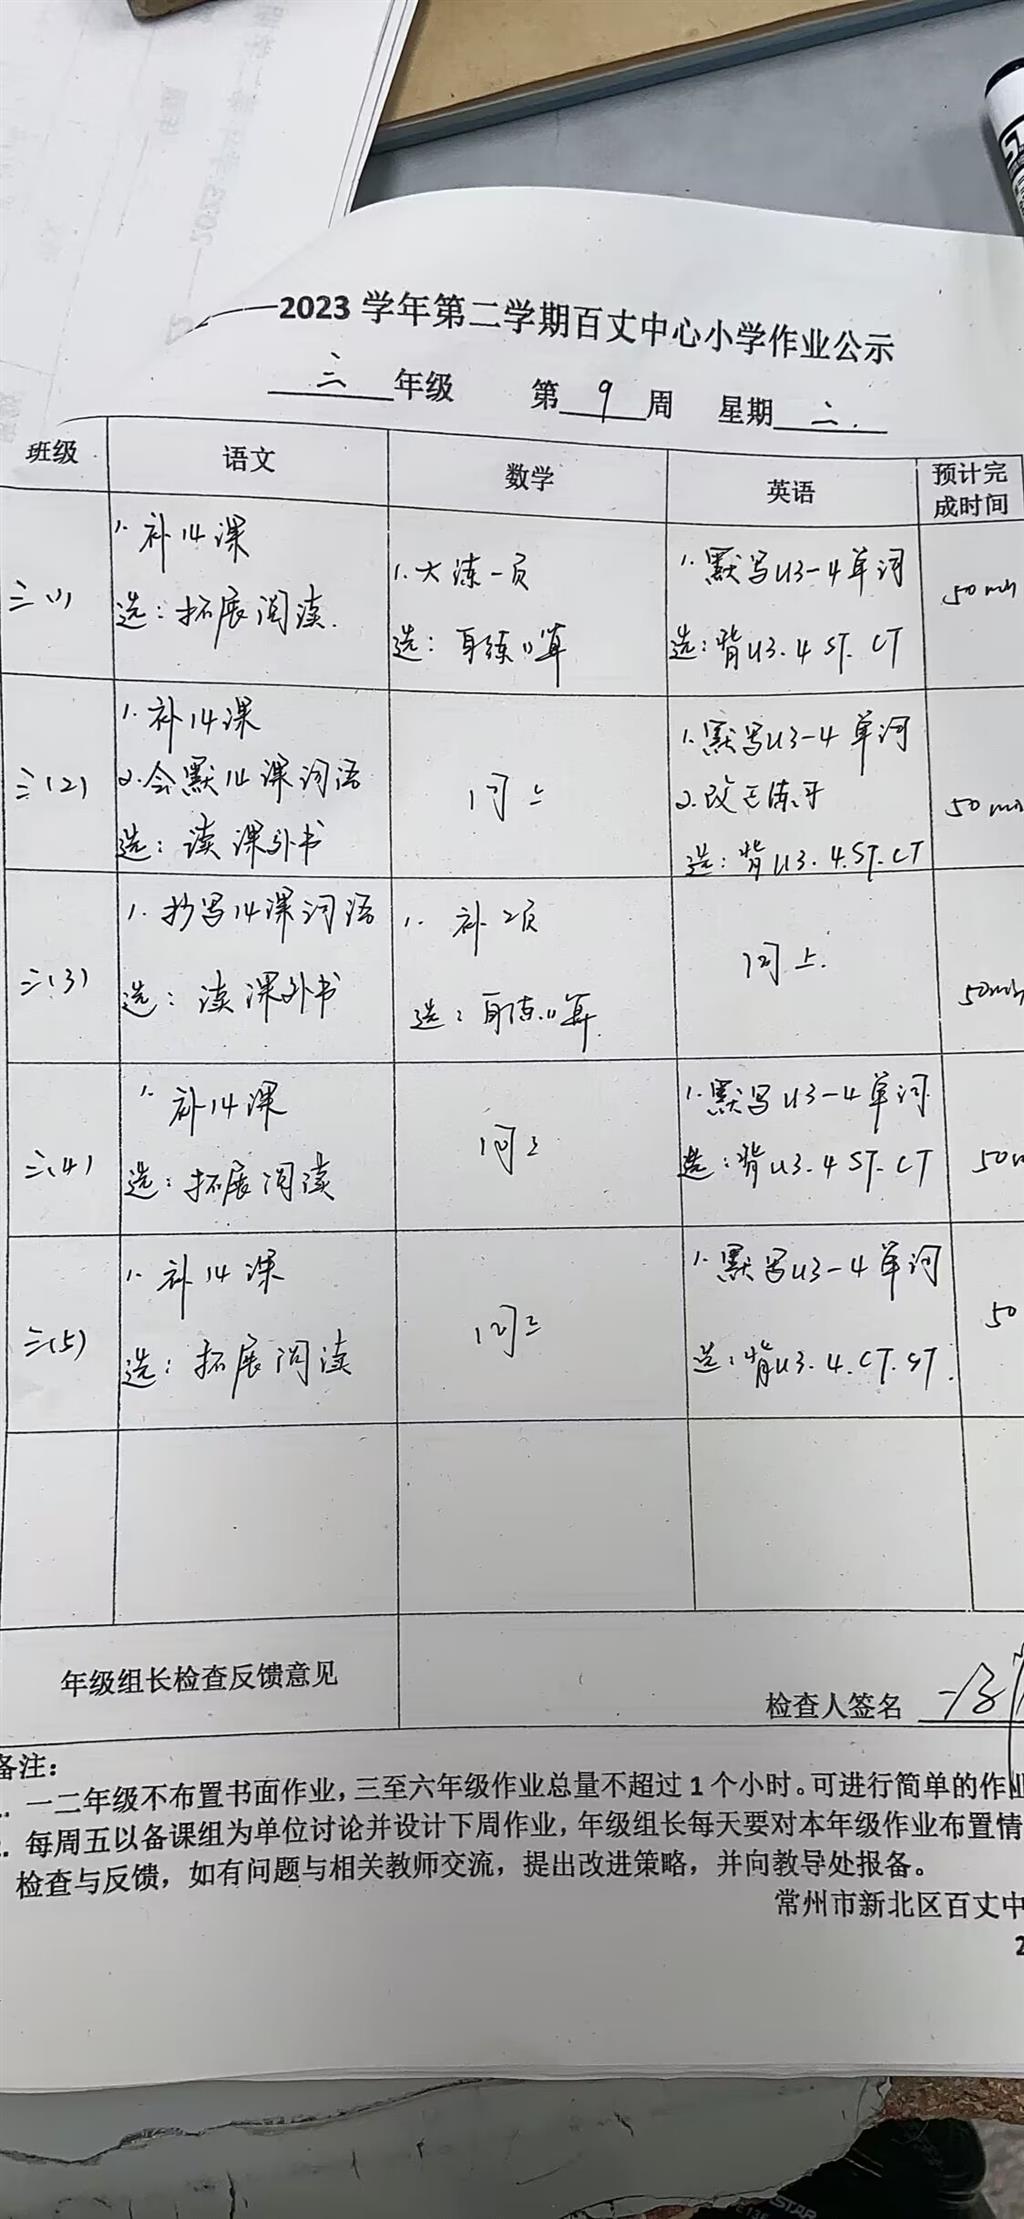 2023 学年第二学期百丈中心小学作业公示
三 年级 第 9 周 星期 二.
班级 语文 数学 英语 预计完成时间
三(1)
1. 补14课
选：拓展阅读.
1. 大练一页
选：自练口算
1. 默写U3-4单词
选：背U3. 4 ST. CT
50min
三(2)
1. 补14课
2. 会默14课词语
选：读课外书
同上
1. 默写U3-4单词
2. 改 练习
选：背U3. 4. ST. CT
50min
三(3)
1. 抄写14课词语
选：读课外书
1. 补2页
选：自练口算
同上.
50min
三(4)
1. 补14课
选：拓展阅读
同上
1. 默写U3-4单词
选：背U3. 4 ST. CT
50m
三(5)
1. 补14课
选：拓展阅读
同上
1. 默写U3-4单词
选：背U3. 4. CT. ST.
50
年级组长检查反馈意见
检查人签名
备注：
一二年级不布置书面作业，三至六年级作业总量不超过 1 个小时。可进行简单的作业
每周五以备课组为单位讨论并设计下周作业，年级组长每天要对本年级作业布置情
检查与反馈，如有问题与相关教师交流，提出改进策略，并向教导处报备。
常州市新北区百丈中
2